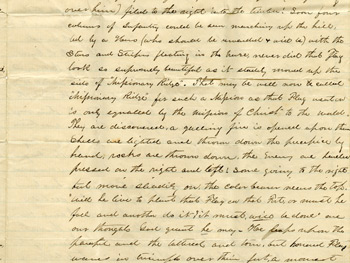 over him) filed to the right into the timber. Soon four
columns of Infantry could be seen marching up the hill,
led by a Hero (who should be rewarded & will be) with the
Stars and Stripes floating in the breeze, never did that Flag
look so supremely beautiful as it steadily moved up the
side of "Missionary Ridge". That may be well now be called
"Missionary Ridge" for such a Mission as that Flag went on
is only equalled by the Mission of Christ to the World.
They are discovered, a galling fire is opened upon them
Shells are lighted and thrown down the precipice by
hand, rocks are thrown down. the enemy are
pressed on the right and left, some going to the right
but more steadily on, the color bearer nears the top.
will he live to plant that Flag on that Pit, or must he
fall and another do it, it must, will be done are
our thoughts. God grant he may. He leaps upon the
parapet and the tattered and torn, but honored Flag
waves in triumph over this fort, a moment